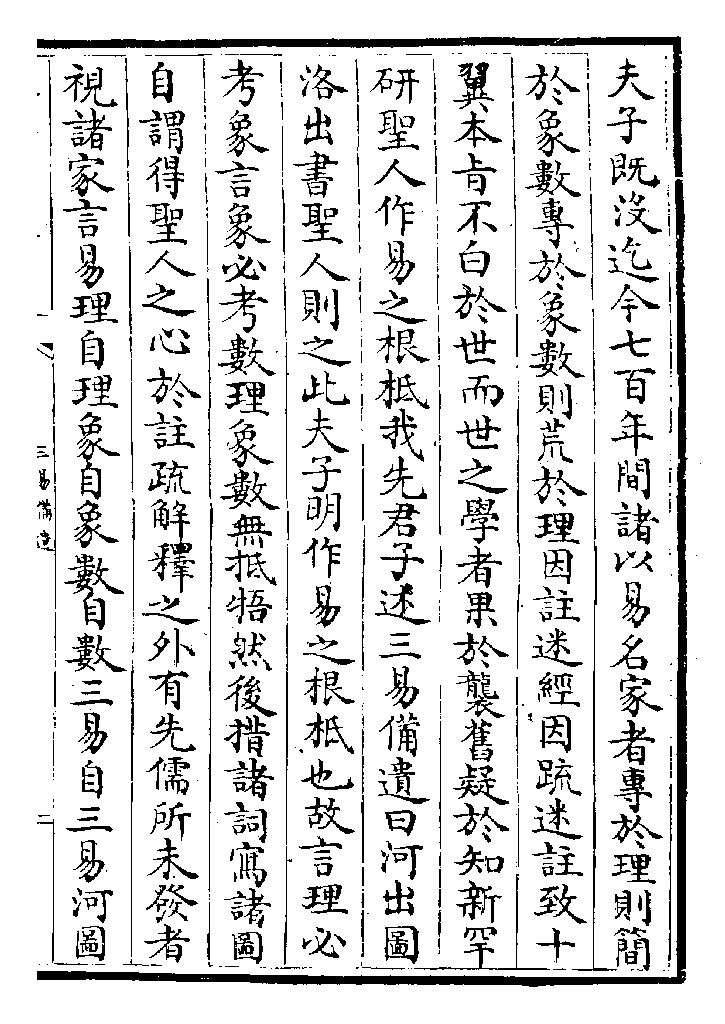 夫子既沒迄今七百年間諸以易名家者專於理則簡
於象數專於象數則荒於理因註迷經因疏迷註致十
翼本㫖不白於世而世之學者果於襲舊疑於知新罕
研聖人作易之根柢我先君子述三易備遺曰河出圖
洛出書聖人則之此夫子明作易之根柢也故言理必
考象言象必考數理象數無抵牾然後措諸詞寫諸圖
自謂得聖人之心於註疏解釋之外有先儒所未發者
視諸家言易理自理象自象數自數三易自三易河圖
三易備遺
二